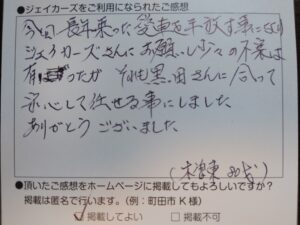 ●ジェイカーズをご利用になられたご感想
今回 長年乗った愛車を手放す事になり
ジェイカーズさんにお願いし少々の不安は
有ったが それも黒田さんに会って
安心して任せる事にしました
ありがとうございました
(木津東
●頂いたご感想をホームページに掲載してもよろしいですか?
掲載は匿名で行います。(例:町田市 K 様)
☑掲載してよい □掲載不可